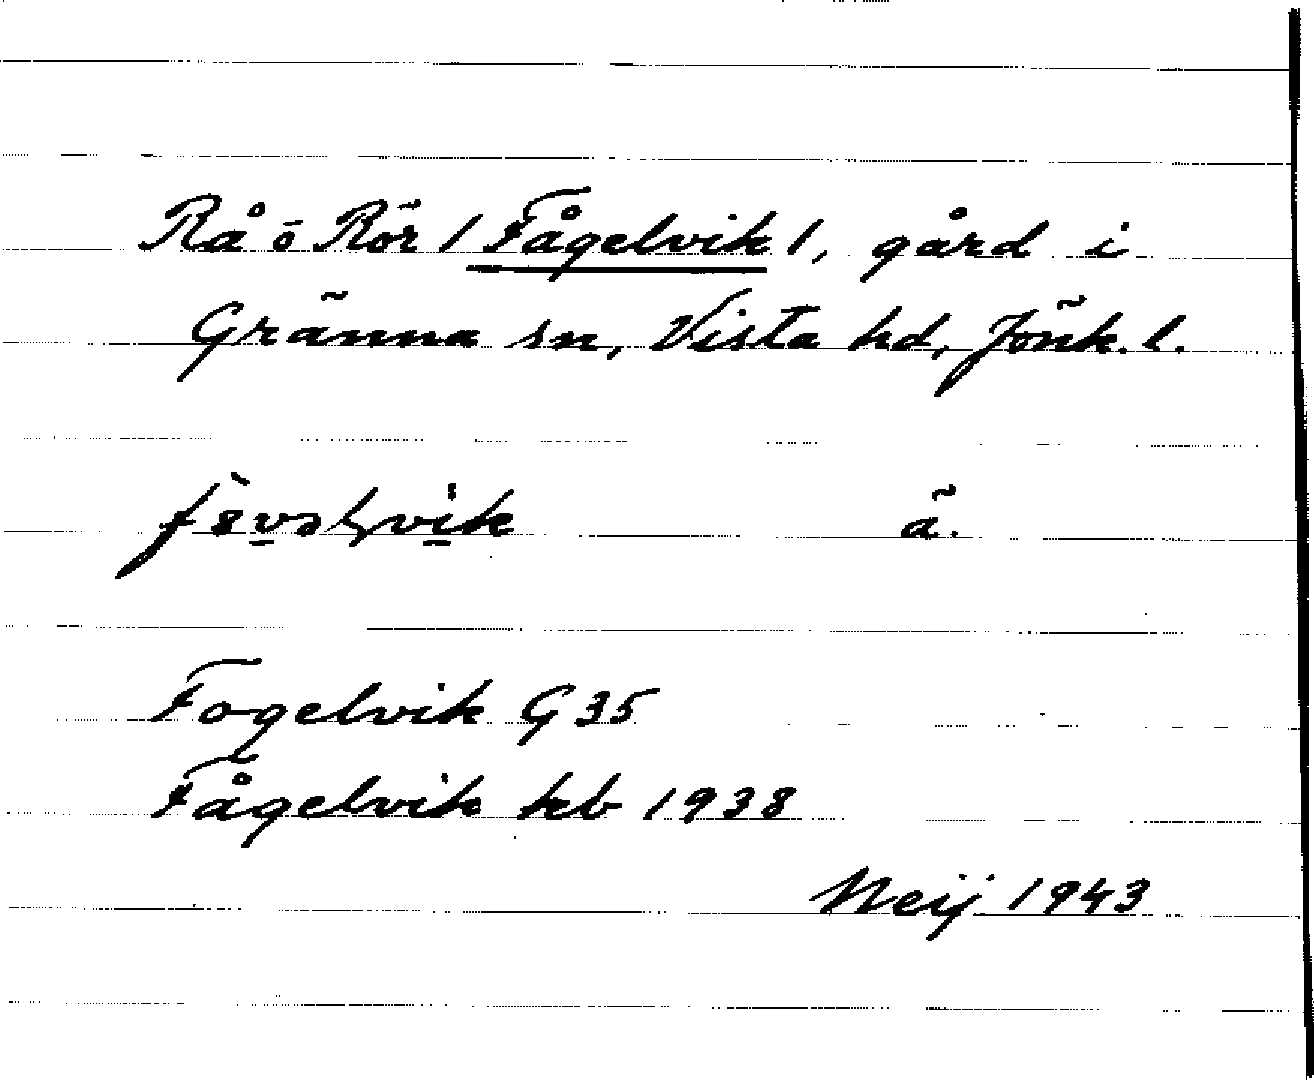 Rå ö Rör / Fågelvik /, gård i
Gränna sn, Vista hd, Jönk. l.
ä.
Fogelvik G 35
Fågelvik kb 1938
Meij 1943